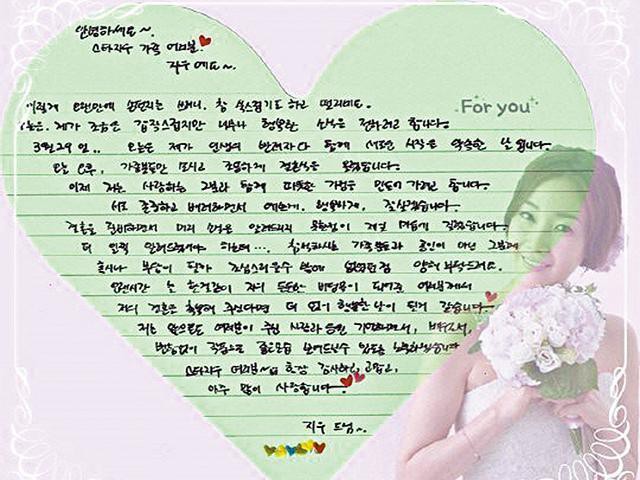 안녕하세요~.
스타지우 가족 여러분.
지우예요~.
이렇게 오랜만에 소식 전하려니, 참 쑥스럽기도 하고 떨리네요.
For you
오늘은 제가 조금은 갑작스럽지만 너무나 행복한 소식을 전하려고 합니다.
3월 29일.. 오늘은 제가 인생의 반려자와 함께 새로운 시작을 약속한 날입니다.
오늘 오후, 가족분들만 모시고 조용하게 결혼식을
이제 저는 사랑하는 그분과 함께 따뜻한 가정을 만들어 가려고 합니다.
서로 존중하고 배려하면서 예쁘게, 행복하게, 잘살겠습니다.
결혼을 준비하면서 미리 소식을 알려드리지 못한점이 제일 마음에 걸렸습니다.
더 일찍 알려드렸어야 하는데..., 참석하시는 가족분들과 공인이 아닌 그분께
혹시나 부담이 될까 조심스러울수 밖에 없었던점 양해 부탁드려요.
오랜시간 늘 한결같이 저의 든든한 버팀목이 되어준 여러분께서
저의 결혼을 축복해 주신다면 더 없이 행복한 날이 될거 같습니다.
저는 앞으로도 여러분이 주신 사랑과 응원 기억하면서, 배우로서,
변함없이 작품으로 좋은모습 보여드릴수 있도록 노력하겠습니다
스타지우 여러분~ 늘 항상 감사하고, 고맙고,
아주 많이 사랑합니다.
지우 드림~.